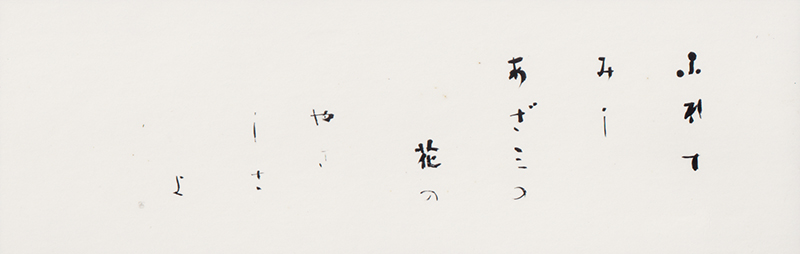 ふれて
みし
あざミの
花の
やさ
しさ
よ